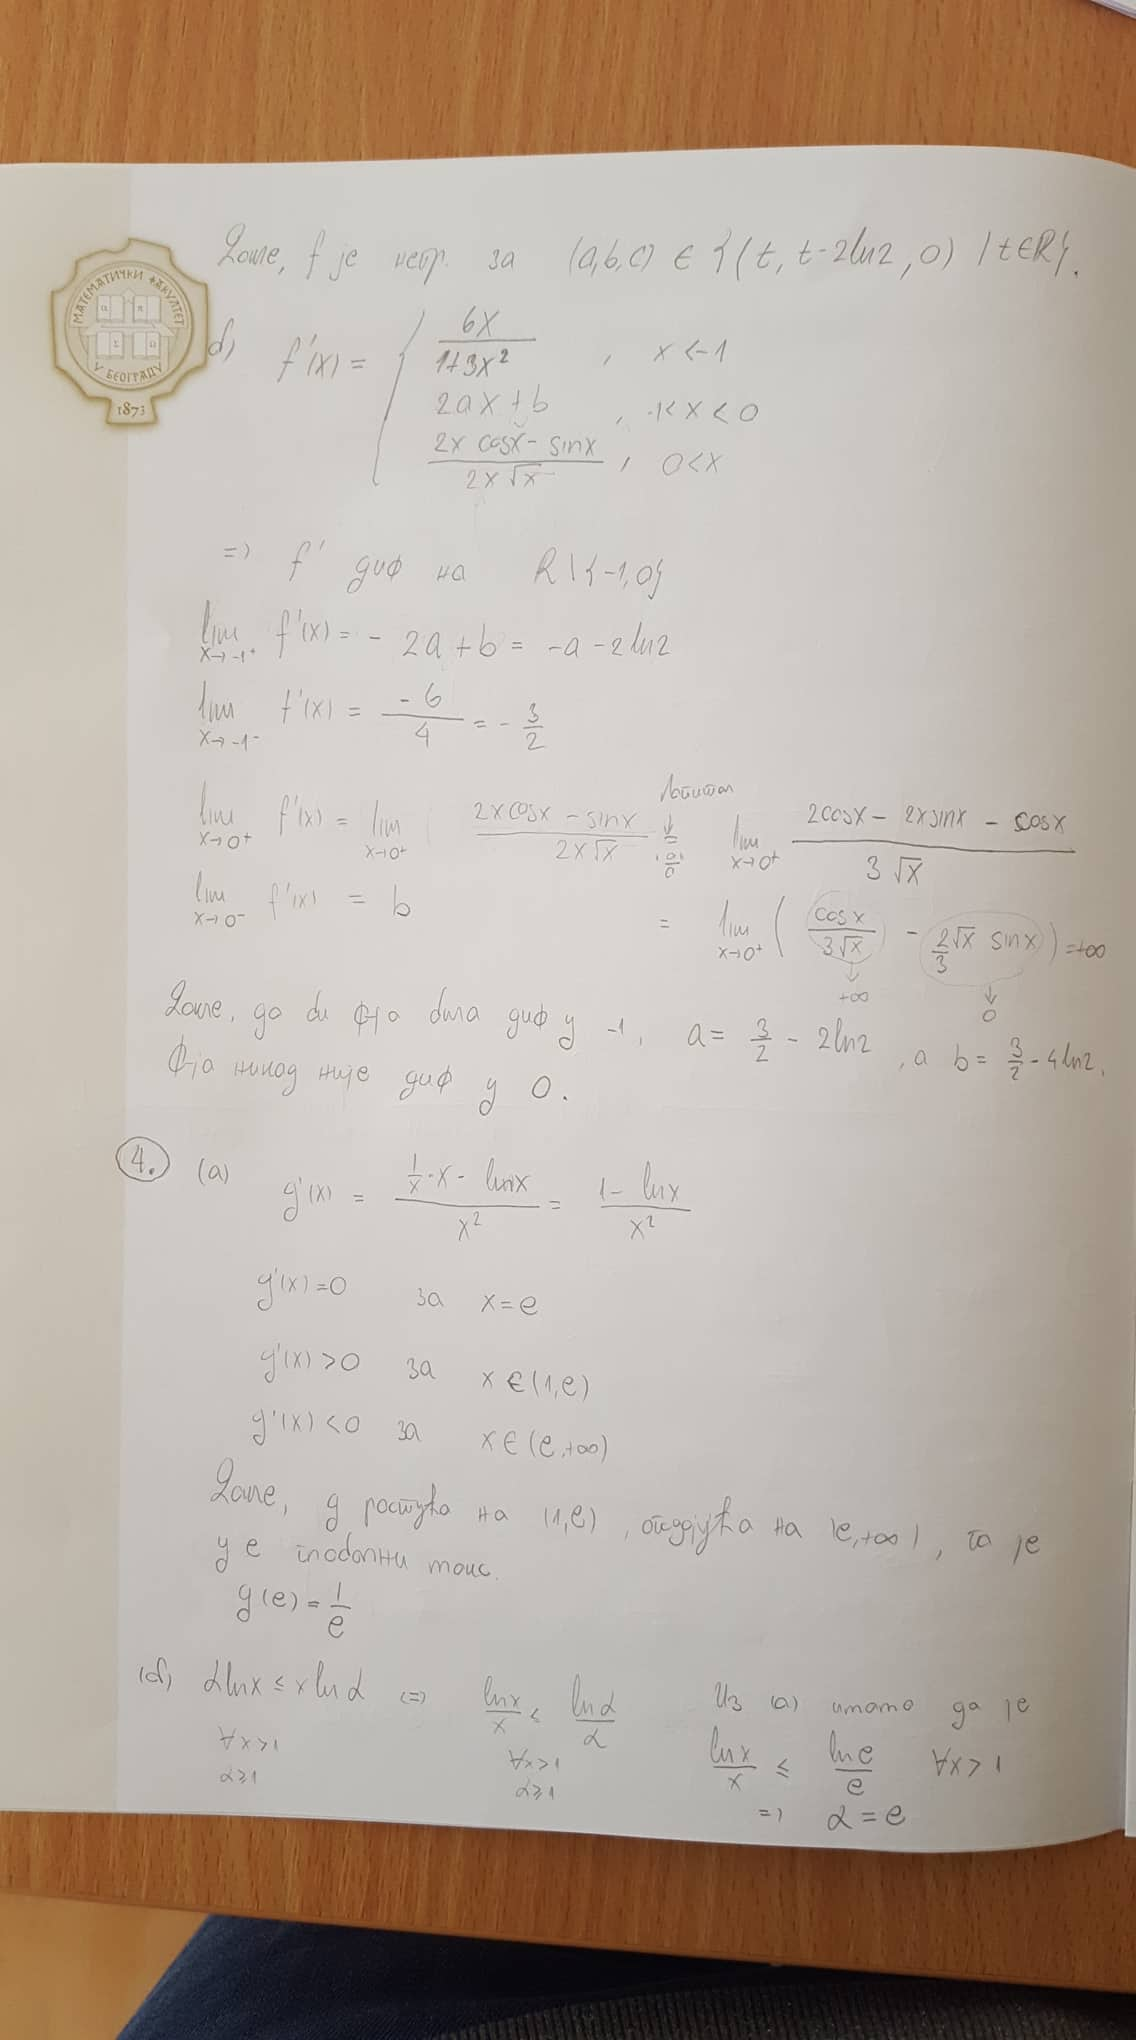 МАТЕМАТИЧКИ ФАКУЛТЕТ
У БЕОГРАДУ
1873
Дакле, f je непр. за (a,b,c) ∈ {(t, t-2ln2, 0) | t∈R}.
б) f'(x) = { 6x / 1+3x² , x<-1
2ax+b , -1<x<0
2x cosx - sinx / 2x√x , 0<x
=> f' диф на R\{-1,0}
lim x→-1⁺ f'(x) = -2a+b = -a-2ln2
lim x→-1⁻ f'(x) = -6/4 = -3/2
lim x→0⁺ f'(x) = lim x→0⁺ 2xcosx - sinx / 2x√x Лопитал ↓ = "0/0" lim x→0⁺ 2cosx - 2xsinx - cosx / 3√x
lim x→0⁻ f'(x) = b
= lim x→0⁺ ( cosx / 3√x - 2/3 √x sinx ) = +∞
↓ +∞ ↓ 0
Дакле, да би ф-ја била диф у -1, a = 3/2 - 2ln2, а b = 3/2 - 4ln2.
Ф-ја никад није диф у 0.
4. (а) g'(x) = 1/x · x - lnx / x² = 1 - lnx / x²
g'(x)=0 за x=e
g'(x)>0 за x∈(1,e)
g'(x)<0 за x∈(e,+∞)
Дакле, g растућа на (1,e), опадајућа на (e,+∞), па је
у e глобални макс.
g(e) = 1/e
(б) αlnx ≤ xlnα (=) lnx/x ≤ lnα/α Из (а) имамо да је
∀x>1 α≥1 ∀x>1 α≥1 lnx/x ≤ lne/e ∀x>1
=> α=e